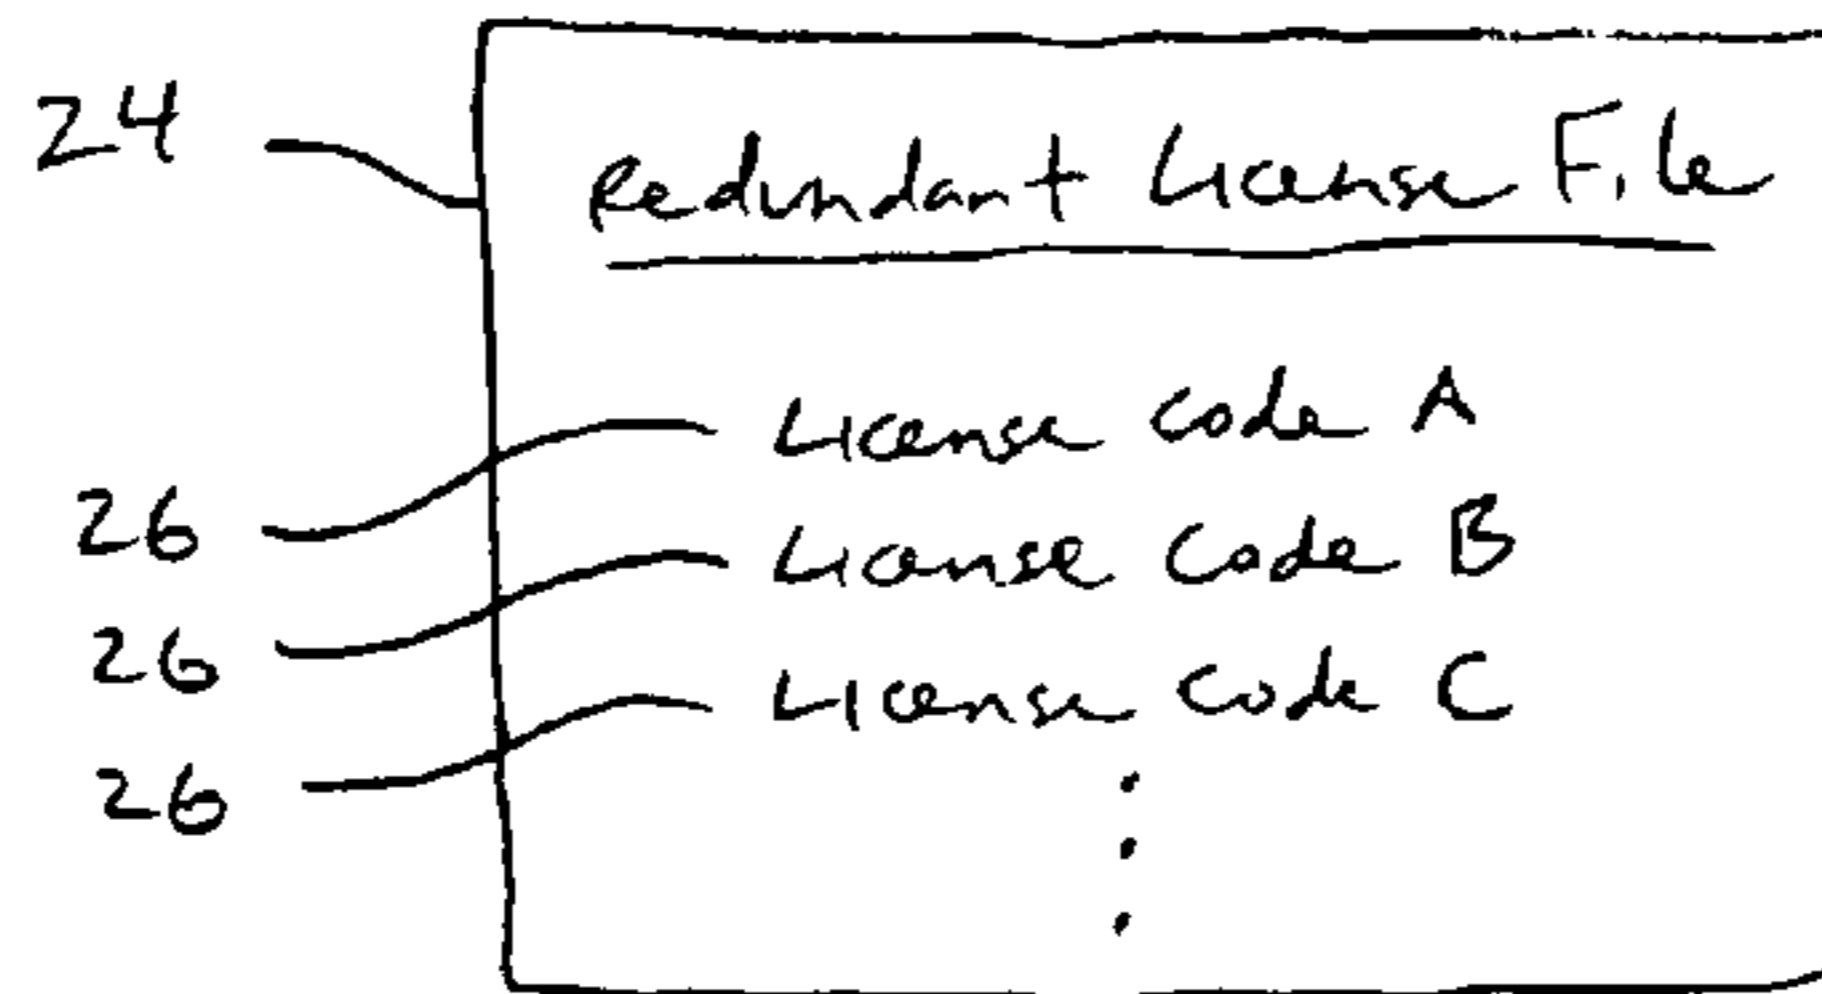 24 Redundant License File
License Code A
26
License Code B
26
License Code C
26